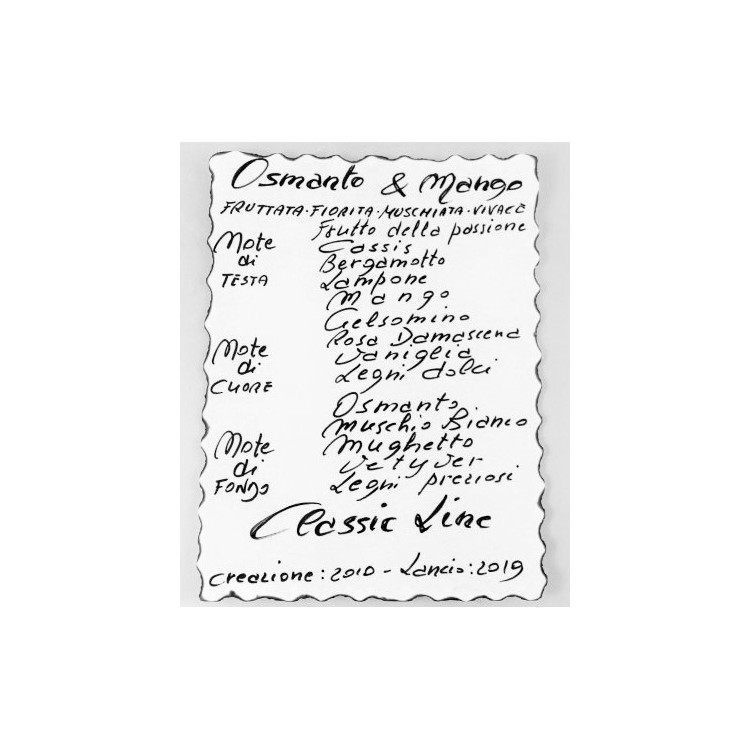 Osmanto & Mango
FRUTTATA·FIORITA·MUSCHIATA·VIVACE
Note di TESTA
Frutto della passione
Cassis
Bergamotto
Lampone
Mango
Note di CUORE
Gelsomino
Rosa Damascena
Vaniglia
Legni dolci
Note di FONDO
Osmanto
Muschio Bianco
Mughetto
Vetyver
Legni preziosi
Classic Line
Creazione: 2010 - Lancio: 2019